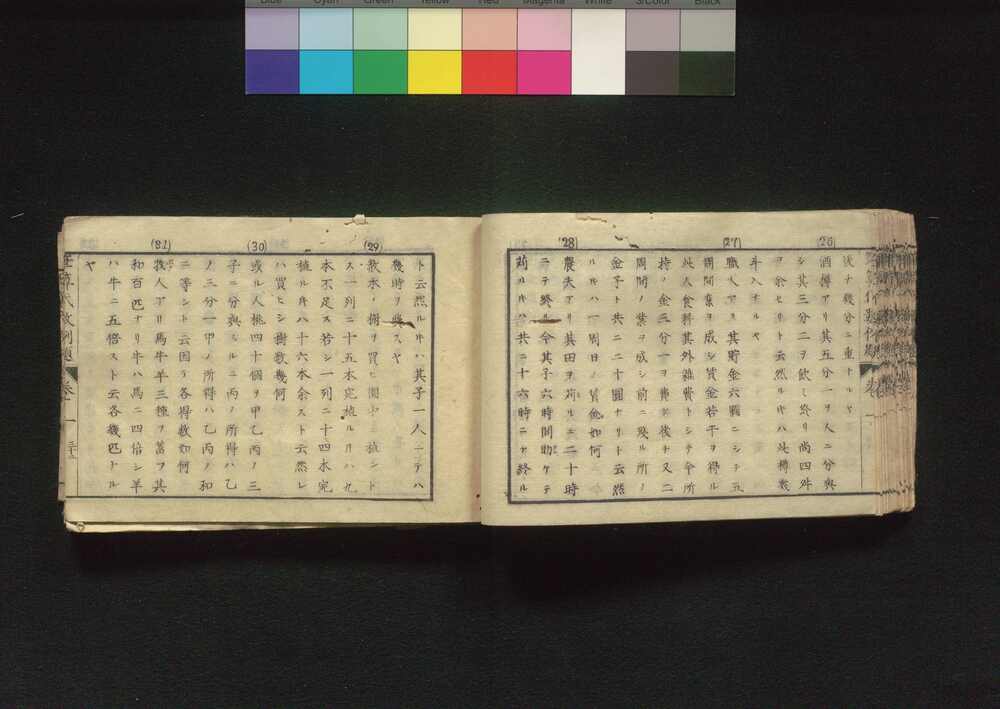 Blue Cyan Green Yellow Red Magenta White 3/Color Black
(26)
後ナ幾分ニ重トルヤ
酒樽アリ其五分一ヲ人ニ分與
シ其三分二ヲ飲ミ終リ尚四舛
ヲ余セリト云然ルキハ此樽幾
斗入ナルヤ
(27)
職人アリ其貯金六圓ニシテ五
周間業ヲ成シ賃金若干ヲ得ル
此人食料其外雑費トシテ今所
持ノ金三分一ヲ費ス後チ又二
周間ノ業ヲ成シ前ニ殘ル所ノ
金子ト共ニ二十圓ナリト云然
ルキハ一周日ノ賃金如何
(28)
農夫アリ其田ヲ苅ルニ二十時
ニテ終ル今其子六時間助ケテ
苅ルキハ共ニ十六時ニテ終ル
ト云然ルキハ其子一人ニテハ
幾時ヲ費スヤ
(29)
数木ノ樹ヲ買ヒ園中ニ植ント
ス一列ニ十五本宛植ルキハ九
本不足ス若シ一列ニ十四本宛
植ルキハ十六本余スト云然レ
ハ買ヒシ樹数幾何
(30)
或ル人桃四十個ヲ甲乙丙ノ三
子ニ分與スルニ丙ノ所得ハ乙
ノ三分一甲ノ所得ハ乙丙ノ和
ニ等シト云因テ各得数如何
(31)
牧人アリ馬牛羊三種ヲ蓄フ其
和百匹ナリ牛ハ馬ニ四倍シ羊
ハ牛ニ五倍スト云各幾匹ナル
ヤ